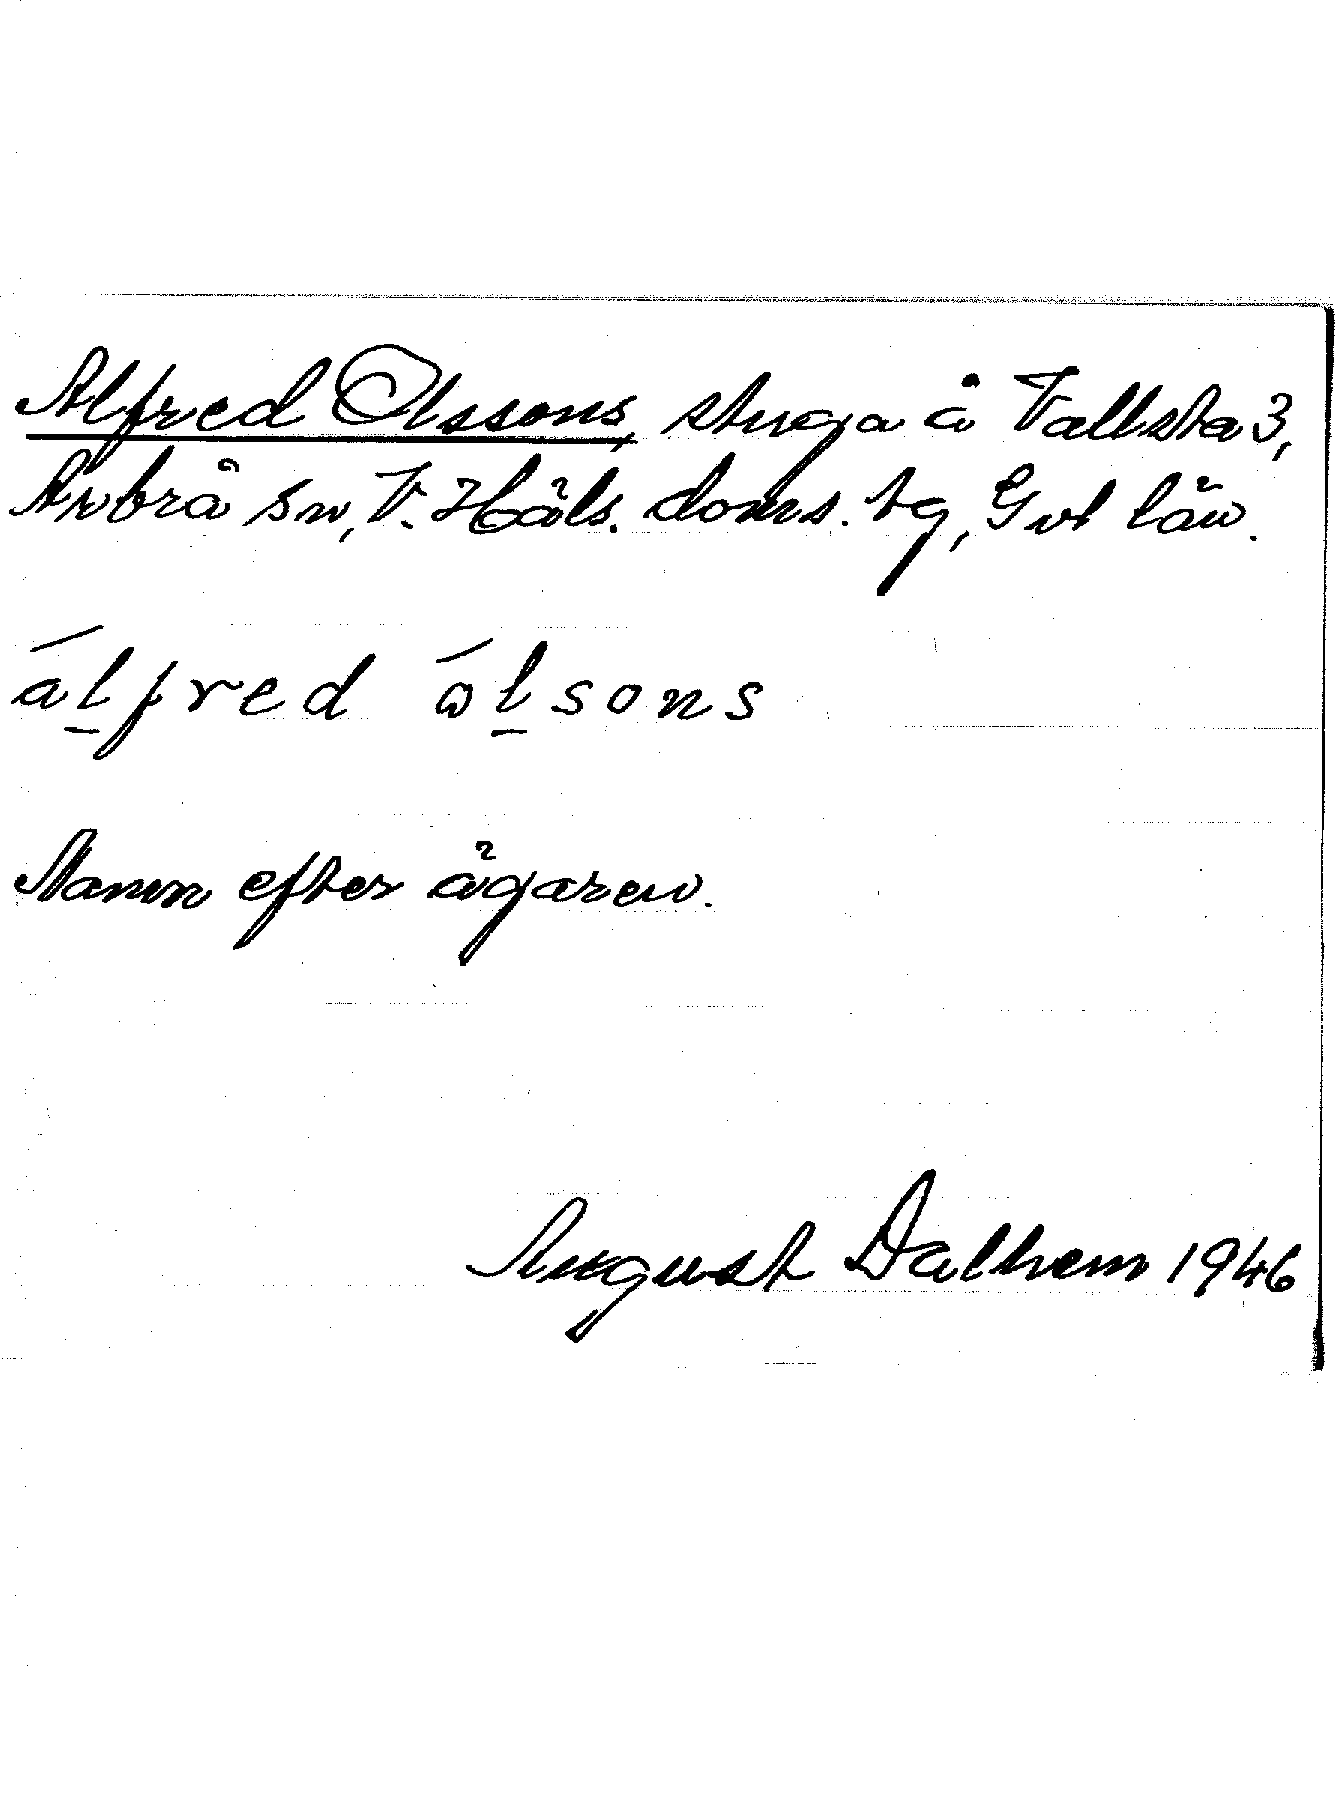 Alfred Olssons, stuga å Vallsta 3,
Arbrå sn, V. Häls. doms. tg, Gvl län.
álfred ólsons
Namn efter ägaren.
August Dalhem 1946